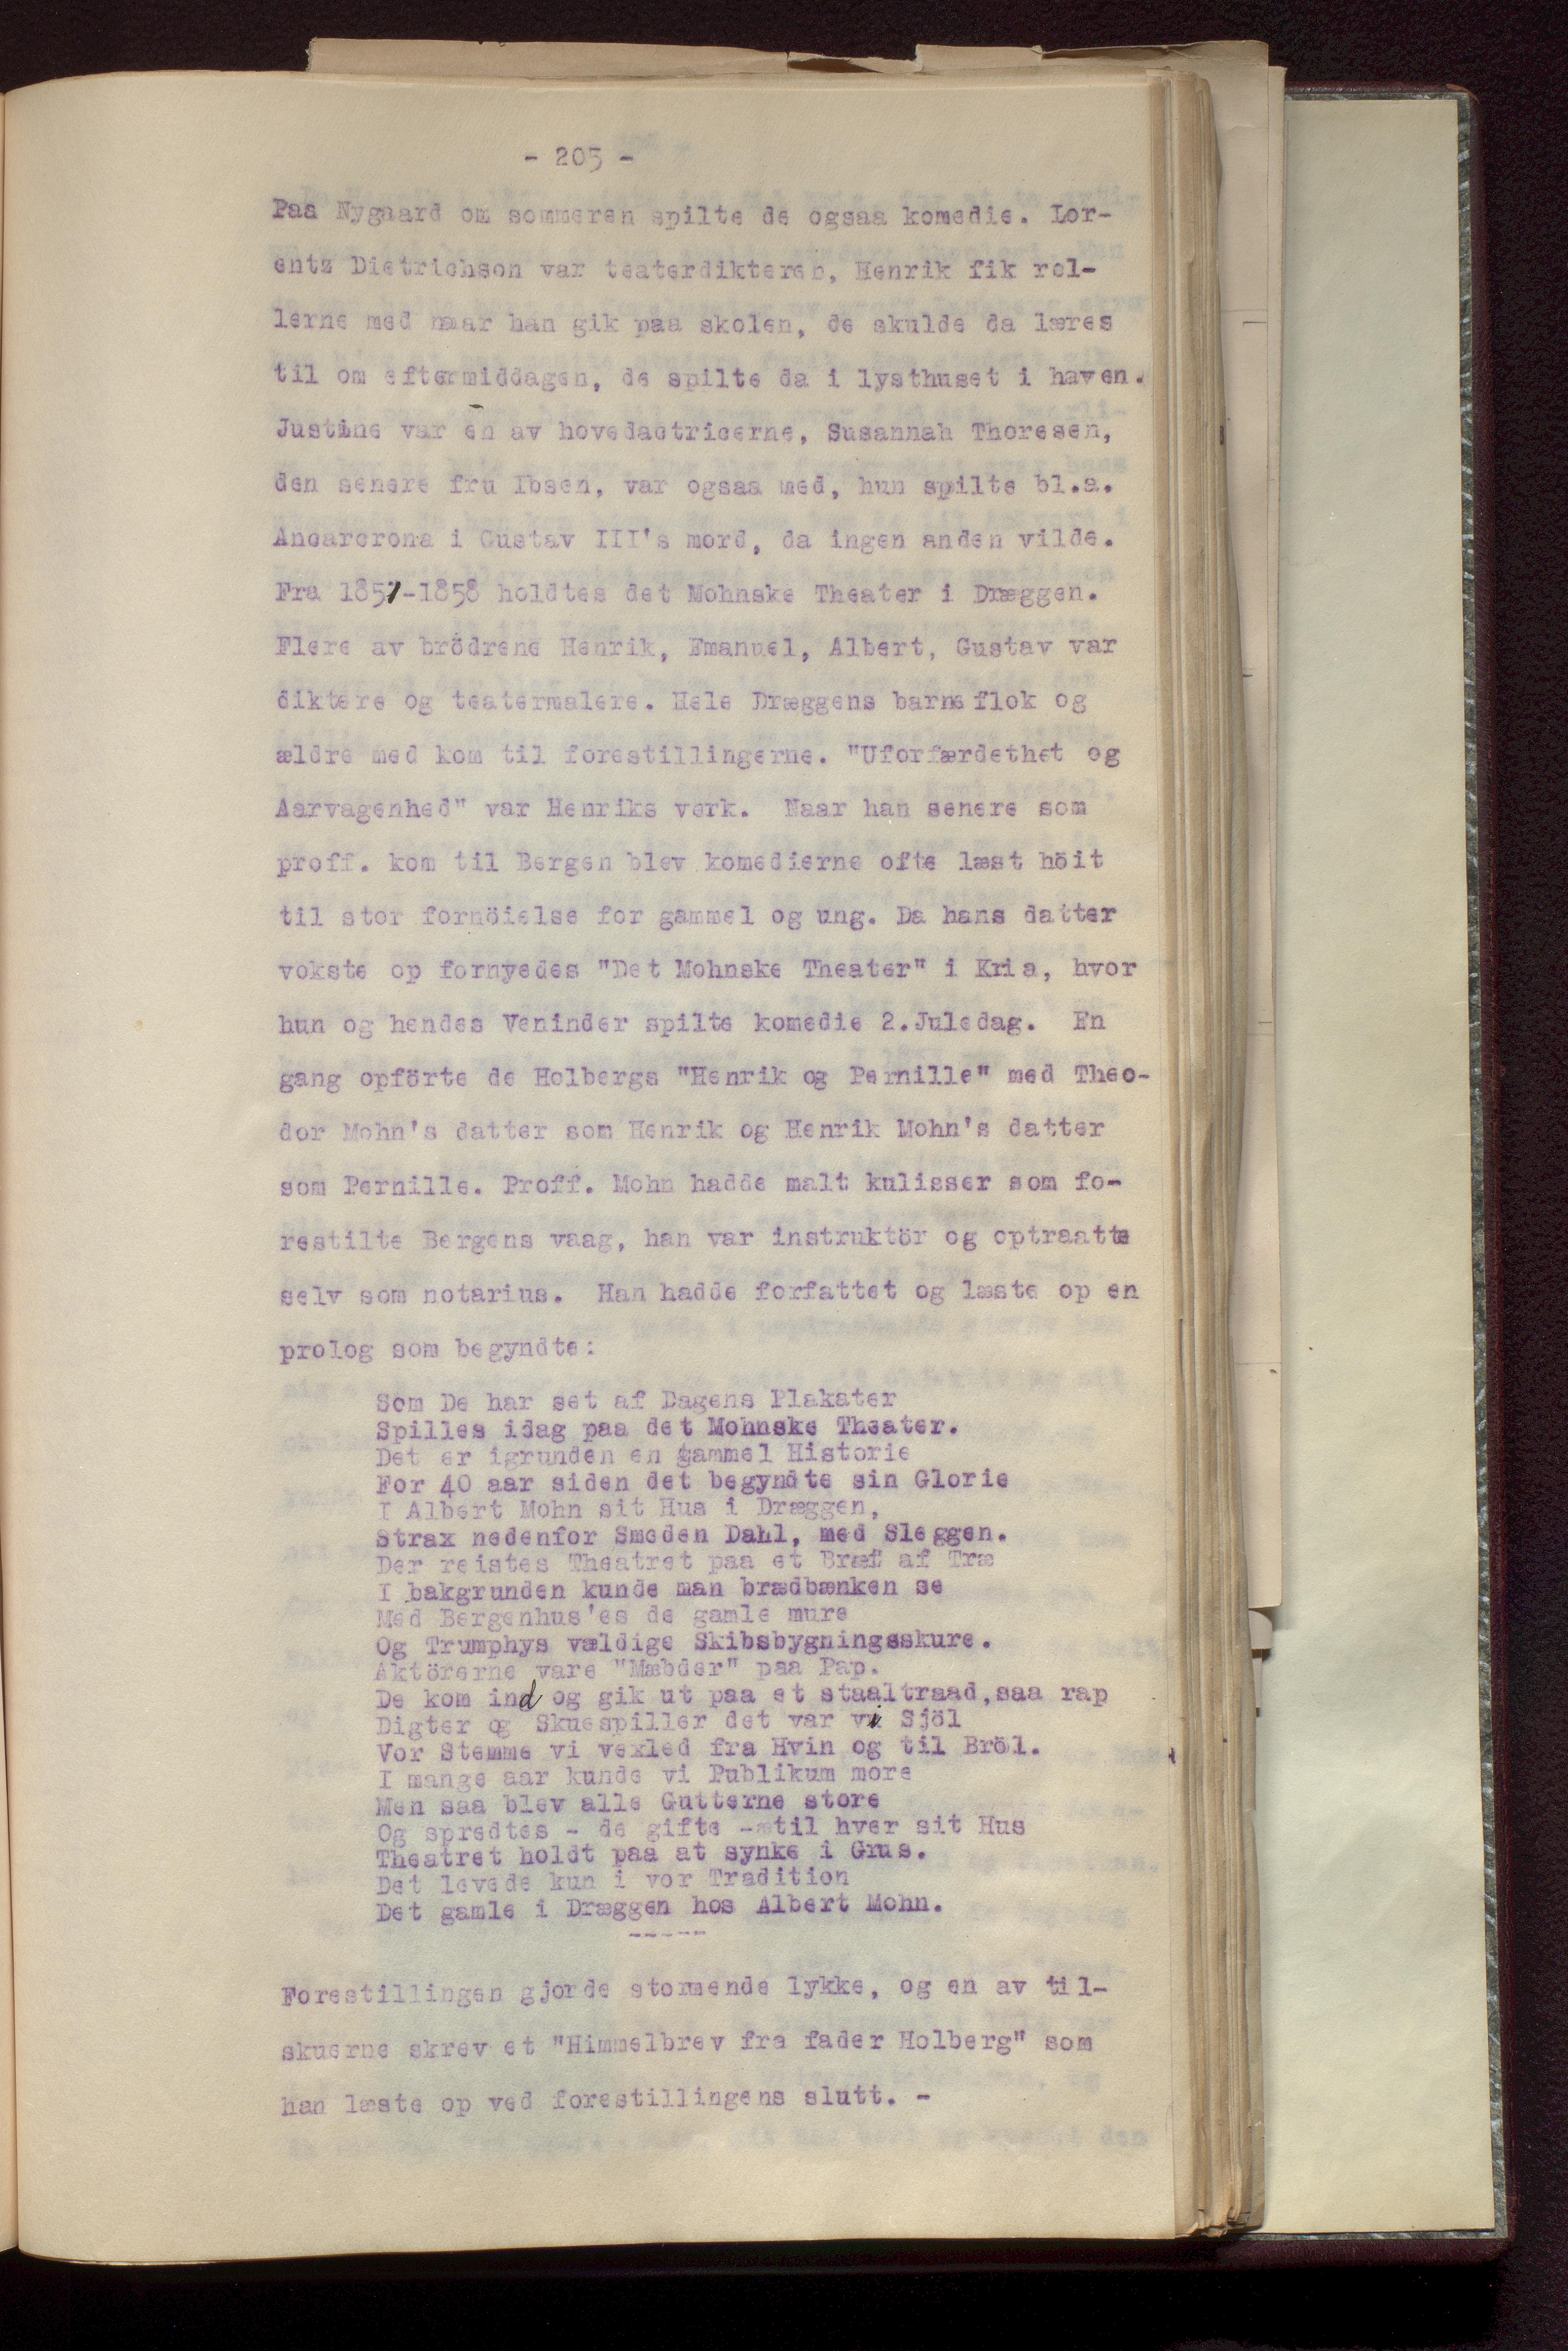 - 205 -
Paa Nygaard om sommeren spilte de ogsaa komedie. Lor-
entz Dietrichson var teaterdikteren, Henrik fik rol-
lerne med naar han gik paa skolen, de skulde da læres
til om eftermiddagen, de spilte da i lysthuset i haven.
Justine var en av hovedactricerne, Susannah Thoresen,
den senere fru Ibsen, var ogsaa med, hun spilte bl.a.
Ancarcrona i Gustav III's mord, da ingen anden vilde.
Fra 1851-1858 holdtes det Mohnske Theater i Dræggen.
Flere av brödrene Henrik, Emanuel, Albert, Gustav var
diktere og teatermalere. Hele Dræggens barneflok og
ældre med kom til forestillingerne. "Uforfærdethet og
Aarvagenhed" var Henriks verk. Naar han senere som
proff. kom til Bergen blev komedierne ofte læst höit
til stor fornöielse for gammel og ung. Da hans datter
vokste op fornyedes "Det Mohnske Theater" i Kria, hvor
hun og hendes Veninder spilte komedie 2.Juledag. En
gang opförte de Holbergs "Henrik og Pernille" med Theo-
dor Mohn's datter som Henrik og Henrik Mohn's datter
som Pernille. Proff. Mohn hadde malt kulisser som fo-
restilte Bergens vaag, han var instruktör og optraatte
selv som notarius. Han hadde forfattet og læste op en
prolog som begyndte:
Som De har set af Dagens Plakater
Spilles idag paa det Mohnske Theater.
Det er igrunden en gammel Historie
For 40 aar siden det begyndte sin Glorie
I Albert Mohn sit Hus i Dræggen,
Strax nedenfor Smeden Dahl, med Sleggen.
Der reistes Theatret paa et af Træ
I bakgrunden kunde man brædbænken se
Med Bergenhus'es de gamle mure
Og Trumphys vældige Skibsbygningsskure.
Aktörerne vare "Mæbder" paa Pap.
De kom ind og gik ut paa et staaltraad,saa rap
Digter og Skuespiller det var vi Sjöl
Vor Stemme vi vexled fra Hvin og til Bröl.
I mange aar kunde vi Publikum more
Men saa blev alle Gutterne store
Og spredtes - de gifte -ætil hver sit Hus
Theatret holdt paa at synke i Grus.
Det levede kun i vor Tradition
Det gamle i Dræggen hos Albert Mohn.
-----
Forestillingen gjorde stormende lykke, og en av til-
skuerne skrev et "Himmelbrev fra fader Holberg" som
han læste op ved forestillingens slutt. -